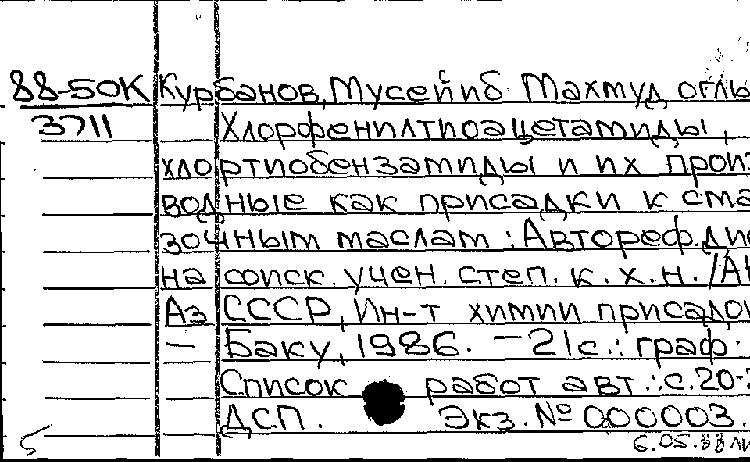 88-50К Курбанов, Мусейиб Махмуд оглы
3711 Хлорфенилтиоацетамиды,
хлортиобензамиды и их произ
водные как присадки к сма
зочным маслам : Автореф. ди
на соиск. учен. степ. к. х. н. /А
Аз СССР, Ин-т химии присадо
— Баку, 1986. — 21с. : граф.
Список работ авт.: с. 20-
ДСП. Экз. № 000003.
5 6.05.88